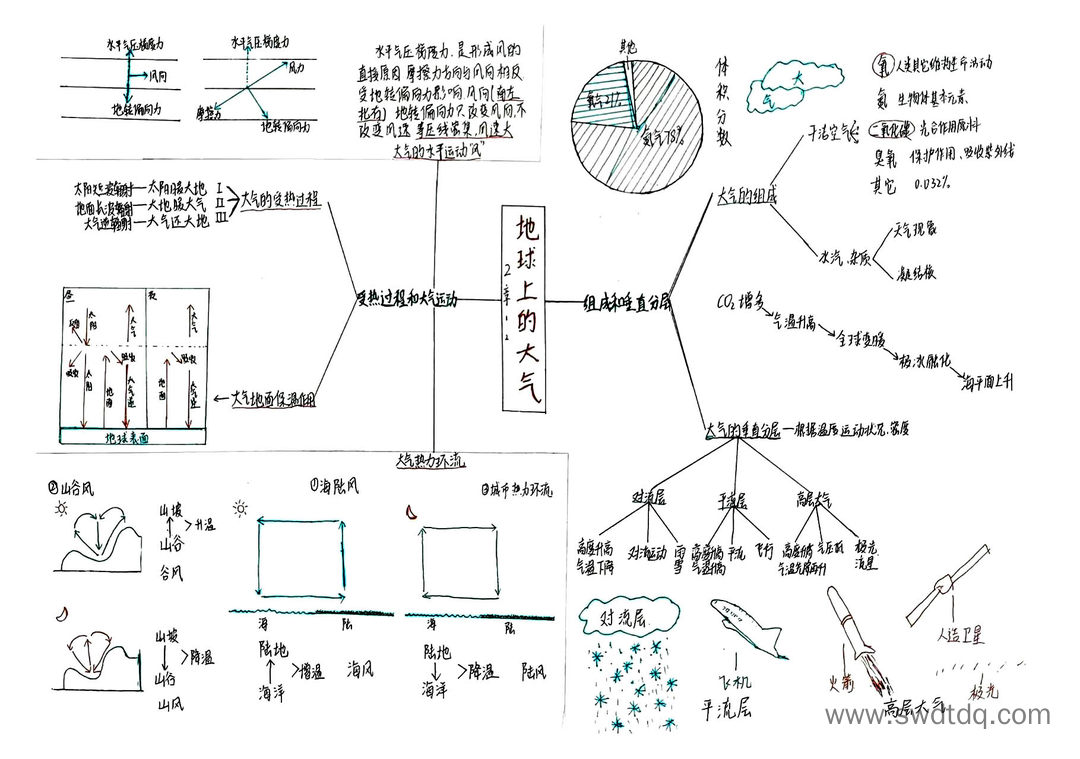 地球上的大气
2章1、2
受热过程和大气运动
水平气压梯度力
风向
地转偏向力
水平气压梯度力
风力
摩擦力
地转偏向力
水平气压梯度力,是形成风的
直接原因 摩擦力方向与风向相反
受地转偏向力影响 风向(南左
北右) 地转偏向力只改变风向,不
改变风速 等压线密集,风速大
大气的水平运动"风"
大气的受热过程
太阳短波辐射—太阳暖大地 I
地面长波辐射—大地暖大气 II
大气逆辐射—大气还大地 III
大气地面保温作用
昼
夜
太阳
大气
大气
吸收
吸收
吸收
太阳
地面
大气逆
地面
大气逆
地球表面
大气热力环流
②山谷风
山坡
山谷
升温
谷风
山坡
山谷
降温
山风
①海陆风
海
陆
陆地
海洋
增温
海风
③城市热力环流
海
陆
陆地
海洋
降温
陆风
组成和垂直分层
其他
氧气21%
氮气78%
体积分数
大气
大气的组成
干洁空气
氧 人类其它维持生命活动
氮 生物体基本元素
二氧化碳 光合作用原料
臭氧 保护作用、吸收紫外线
其它 0.032%
水汽、杂质
天气现象
凝结核
CO₂增多
气温升高
全球变暖
极冰融化
海平面上升
大气的垂直分层—根据温度、运动状况、密度
对流层
平流层
高层大气
高度升高
气温下降
对流运动
雨雪
平流
飞行
极光
流星
对流层
飞机
平流层
火箭
人造卫星
极光
高层大气
www.swdtdq.com